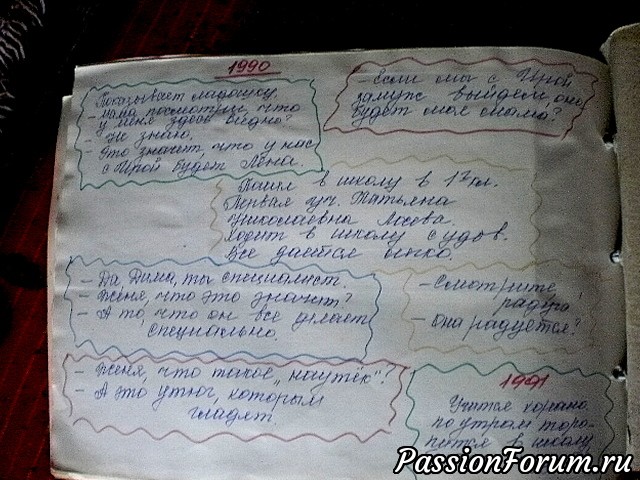 1990
Показывает ладошку.
- Мама посмотри, что
у меня здесь видно?
- Не знаю.
- Это значит, что у нас
с Ирой будет Лена.
- Если мы с Ирой
замуж выйдем, она
будет моя мама?
Пошел в школу в 1й кл.
Первая уч. Татьяна
Николаевна
Ходит в школу с удов.
Все дается легко.
- Да, Дима, ты специалист.
- Женя, что это значит?
- А то, что он все делает
специально.
- Смотрите
радуга
- Она радуется?
- Женя, что такое "наутёк"?
- А это утюг, которым
гладят.
1991
Учится хорошо
по утрам торо-
пится в школу
PassionForum.ru